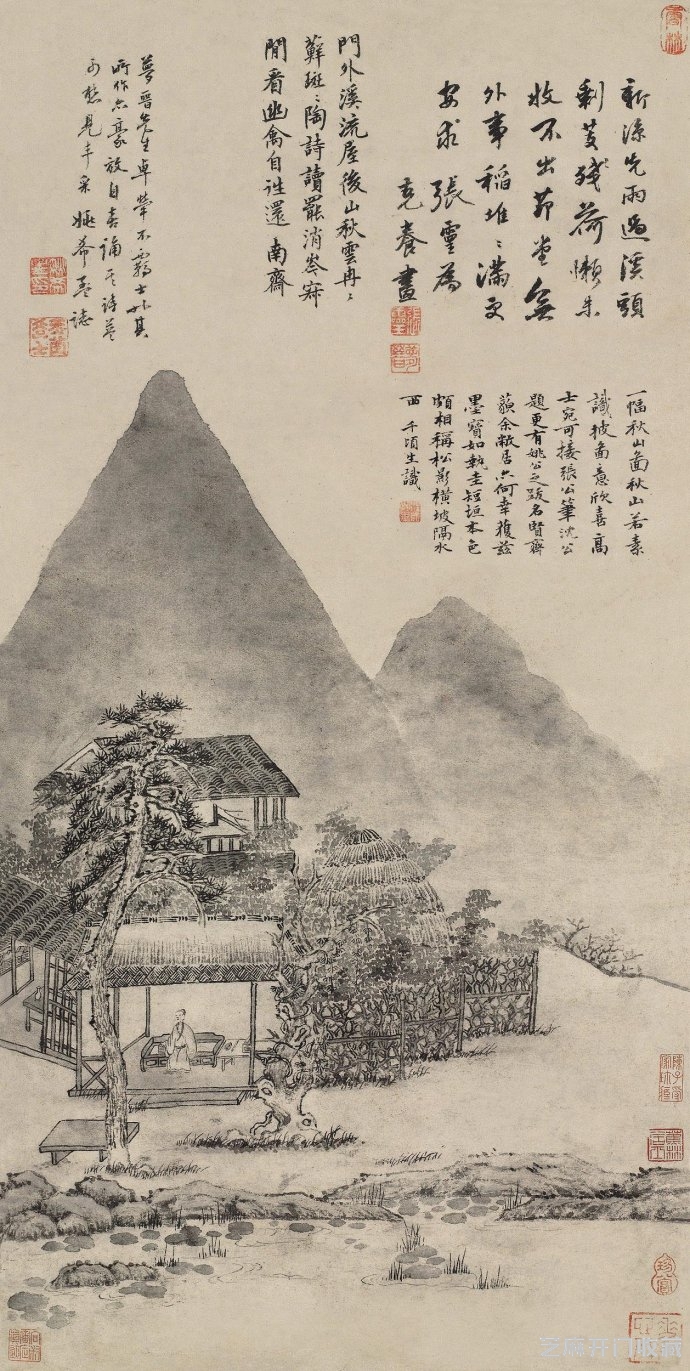 新涼先雨過溪頭
剩芰殘荷懶未
收不出茆堂無
外事稻堆〻滿更
安求 張靈為
克養畫
門外溪流屋後山秋雲冉〻
蘚斑〻陶詩讀罷消岑寂
閒看幽禽自往還 南齋
夢晉先生卓犖不羈士也其
所作亦豪放自喜誦其詩益
可想見丰采 姚希孟誌
一幅秋山啚秋山若素
識披啚意欣喜高
士宛可接張公筆沈公
題更有姚公之跋名賢齊
余敝居亦何幸獲茲
墨寶如執圭短垣本色
頗相稱松影橫坡隔水
西 千頃生識
芝麻开门收藏